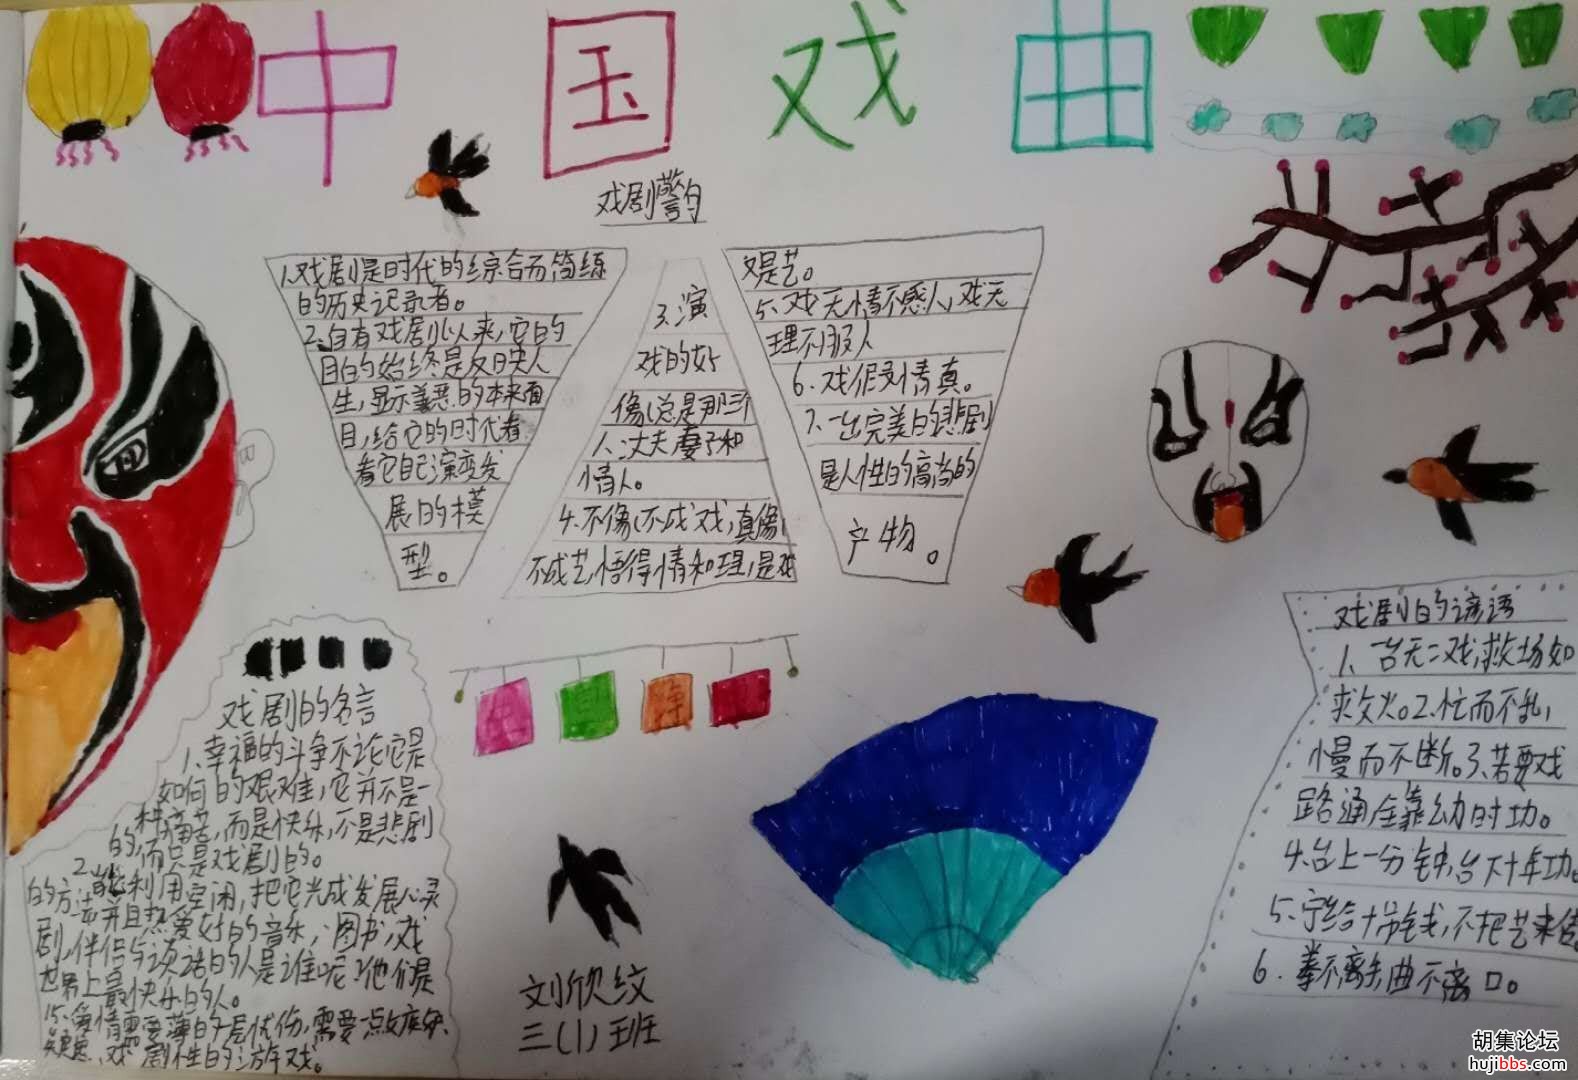 中国戏曲
戏剧警句
1.戏剧是时代的综合而简练
的历史记录者。
2.自有戏剧以来,它的
目的始终是反映人
生,显示善恶的本来面
目,给它的时代看
看它自己演变发
展的模
型。
3.演
戏的好
像总是那三
人:丈夫妻子和
情人。
4.不像不成戏,真像
不成艺悟得情和理,是戏
又是艺。
5.戏无情不感人,戏无
理不服人
6.戏假情真。
7.一出完美的悲剧
是人性的高尚的
产物。
戏剧的名言
1.幸福的斗争不论它是
如何的艰难,它并不是一
种痛苦,而是快乐,不是悲剧
的,而只是戏剧的。
2.能利用空闲,把它当成发展心灵
的方法并且热爱好的音乐,图书,戏
剧,伴侣与谈话的人是谁呢?他们是
世界上最快乐的人。
15.爱情需要薄薄的一层忧伤,需要一点嫉妒、
疑虑、戏剧性的游戏。
戏剧的谚语
1.一台无二戏,救场如
救火。2.忙而不乱,
慢而不断。3.若要戏
路通全靠幼时功。
4.台上一分钟,台下十年功。
5.宁给十吊钱,不把艺来传
6.拳不离手曲不离口。
刘欣纹
三(1)班
胡集论坛
hujibbs.com